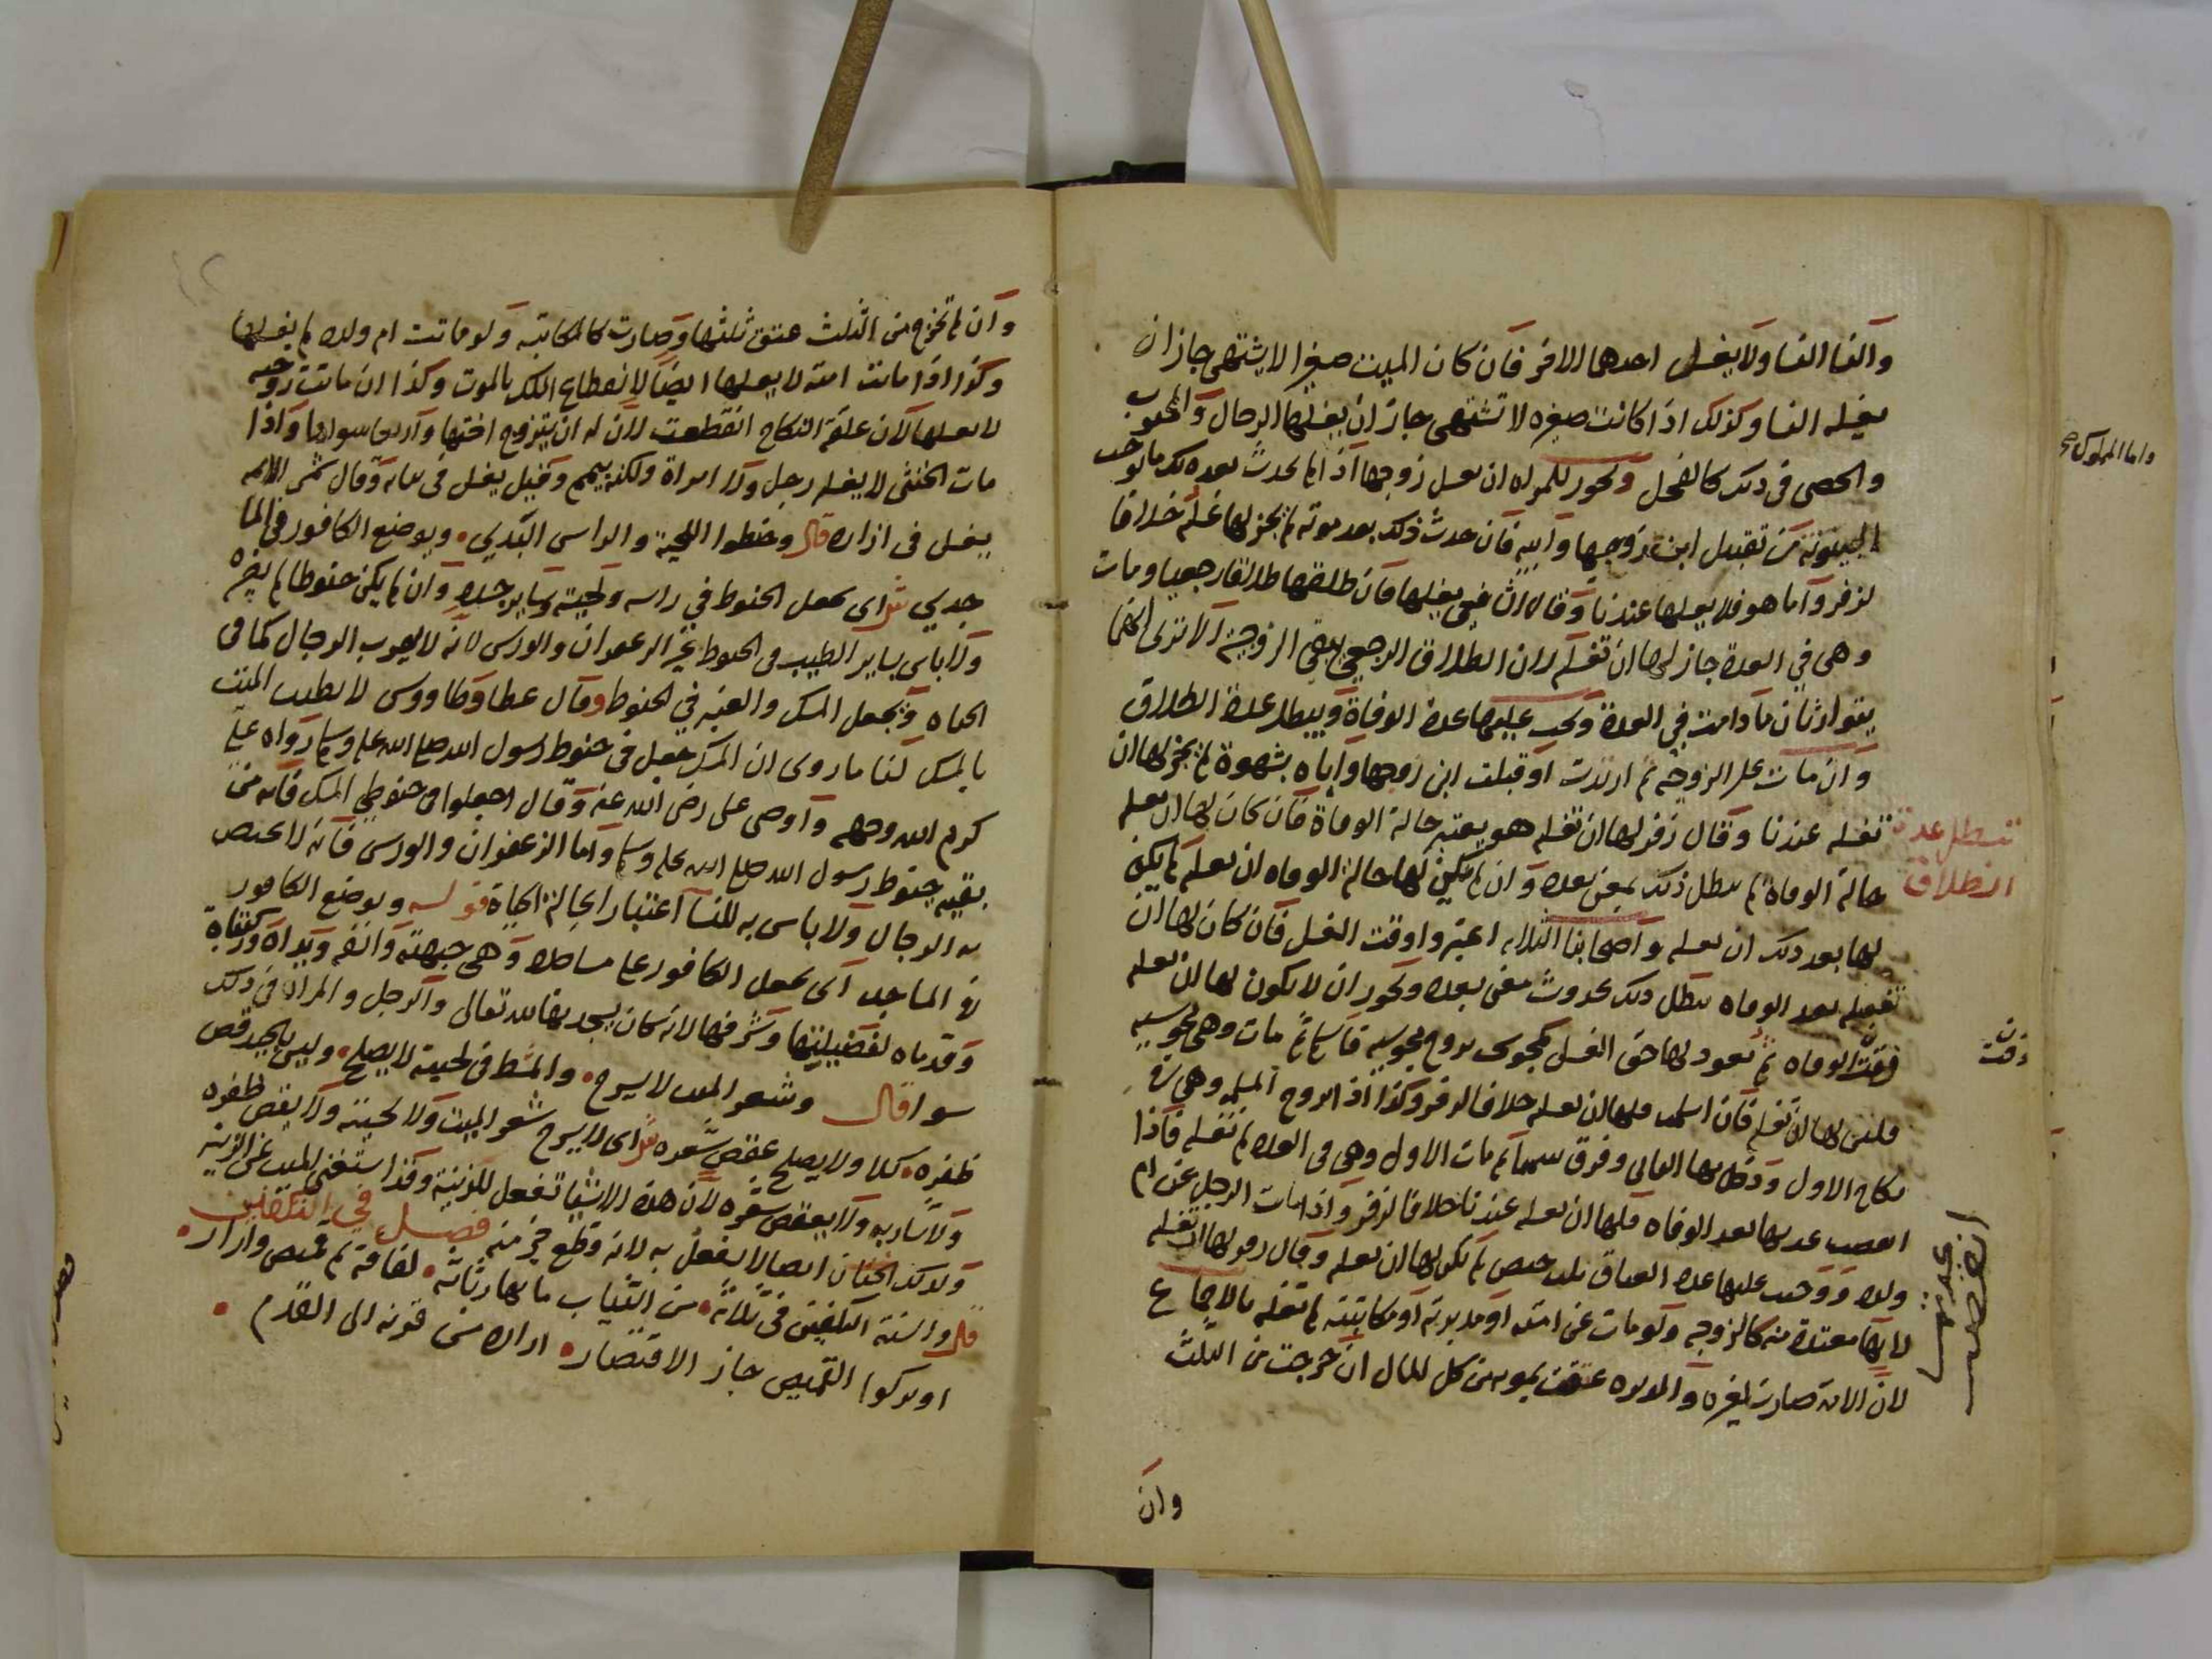 والنسا النسا ولا يغسل احدهما الاخر فان كان الميت صغيرا لا يشتهى جاز ان
يغسله النسا وكذلك اذا كانت صغيره لا تشتهى جاز ان يغسلها الرجال والمجبوب
والخصى فى ذلك كالفحل ويجوز للمراه ان تغسل زوجها اذا لم يحدث بعده ما يوجب
البينونة من تقبيل ابن زوجها او ابيه فان حدث ذلك بعد موته لم يجز لها غسله خلافا
لزفر واما هو فلا يغسلها عندنا وقال الشافعى يغسلها فان طلقها طلاقا رجعيا ومات
وهى فى العدة جاز لها ان تغسله لان الطلاق الرجعى لا الزوجية الا ترى انهما
يتوارثان ما دامت فى العدة ويجب عليها عدة الوفاة ويبطل عدة الطلاق
وان مات على الزوجية ثم ارتدت او قبلت ابن زوجها او اباه بشهوة لم يجز لها ان
تغسله عندنا وقال زفر لها ان تغسله هو يعتبر حالة الوفاة فان كان لها ان تغسله
حالة الوفاة لم يبطل ذلك بمعنى بعده وان لم يكن لها حالة الوفاه ان تغسله لم يكن
لها بعد ذلك ان تغسله واصحابنا الثلاثه اعتبروا وقت الغسل فان كان لها ان
تغسله بعد الوفاه يبطل ذلك بحدوث معنى بعده ويجوز ان لا يكون لها ان تغسله
وقت الوفاه ثم تعود لها حق الغسل كمجوسى تزوج مجوسيه فاسلم ثم مات وهى مجوسيه
فليس لها ان تغسله فان اسلمت فلها ان تغسله خلافا لزفر وكذا اذا تزوج المسلمه وهى فى
نكاح الاول ودخل بها الثانى وفرق بينهما ثم مات الاول وهى فى العده لم تغسله فاذا
انقضت عدتها بعد الوفاه فلها ان تغسله عندنا خلافا لزفر واذا مات الرجل عن ام
ولده ووجب عليها عدة العتاق ثلاث حيض لم يكن لها ان تغسله وقال زفر لها ان تغسله
لانها معتدة منه كالزوجه ولو مات عن امته او مدبرته او مكاتبته لم تغسله بالاجماع
لان الامة صارت لغيره والمدبره عتقت بموته من كل المال ان خرجت من الثلث
وان
تبطل عدة
الطلاق
وقت
انقضت
عدتها
واما المملوك
وان لم تخرج من الثلث عتق ثلثها وصارت كالمكاتبه ولو ماتت ام ولده لم يغسلها
وكذا اذا ماتت امته لا يغسلها ايضا لانقطاع الملك بالموت وكذا ان ماتت زوجته
لا يغسلها لان علقة النكاح انقطعت لان له ان يتزوج اختها واربعا سواها واذا
مات الخنثى لا يغسله رجل ولا امراة ولكنه ييمم وقيل يغسل فى ثيابه وقال شمس الائمه
يغسل فى ازاره قال وحنطوا اللحية والراس الندي ويوضع الكافور فى الما
جدي ش اى يجعل الحنوط في راسه ولحيته وساير جسده وان لم يكن حنوطا لم يضره
ولا باس بساير الطيب فى الحنوط غير الزعفران والورس لانه لا يقرب الرجال كما فى
الحياه ويجعل المسك والعنبر في الحنوط وقال عطا وطاووس لا يطيب الميت
بالمسك لنا ما روى ان المسك جعل فى حنوط رسول الله صلى الله عليه وسلم رواه علي
كرم الله وجهه واوصى على رضى الله عنه وقال اجعلوا فى حنوطي المسك فانه من
بقيه حنوط رسول الله صلى الله عليه وسلم واما الزعفران والورس فانه لا يختص
به الرجال ولا باس به للنسا اعتبارا بحالة الحياة قوله ويوضع الكافور
فى المساجد اى يجعل الكافور على مساجده وهى جبهته وانفه ويداه وركبتاه
وقدماه لفضيلتها وشرفها لانه كان يسجد بها لله تعالى والرجل والمراة فى ذلك
سوا قال وشعر الميت لا يسرح والمشط فى لحيته لا يصلح وليس بالجيد قص
ظفره كلا ولا يصلح عقص شعره ش اى لا يسرح شعر الميت ولا لحيته ولا يقص ظفره
ولا شاربه ولا يعقص شعره لان هذه الاشيا تفعل للزينة وقد استغنى الميت عن الزينه
وكذلك الختان ايضا لا يفعل به لانه قطع جز منه فصل في التكفين
قال والسنة التكفين فى ثلاثة من الثياب ما بها رثاثة لفافة ثم قميص وازار
او تركوا القميص جاز الاقتصار ازاره من قرنه الى القدم